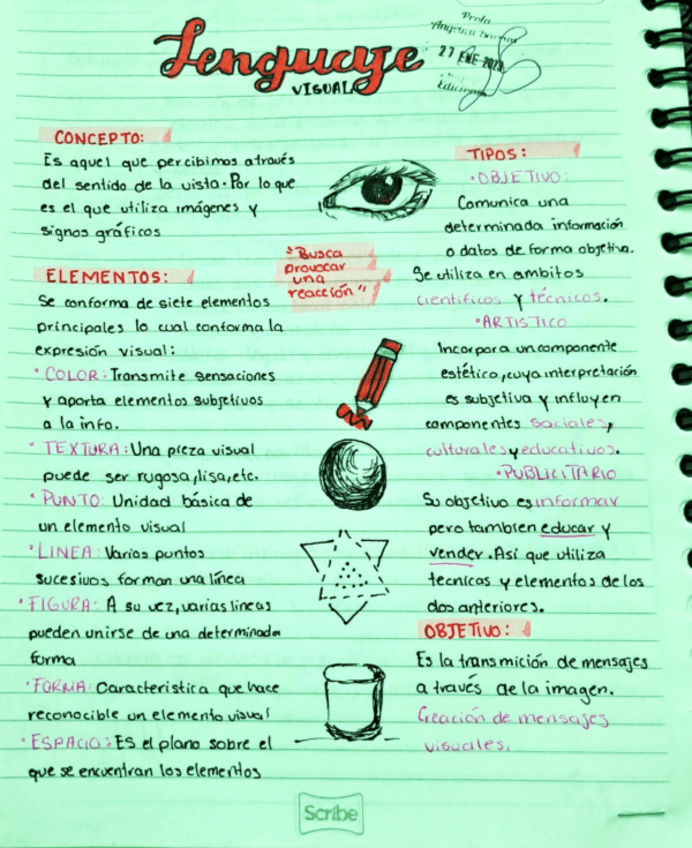 Lenguaje
VISUAL
Profa
27 ENE 2023
CONCEPTO:
Es aquel que percibimos através
del sentido de la vista. Por lo que
es el que utiliza imágenes y
signos gráficos
"Busca
provocar
una
reacción"
ELEMENTOS:
Se conforma de siete elementos
principales lo cual conforma la
expresión visual:
• COLOR: Transmite sensaciones
y aporta elementos subjetivos
a la info.
• TEXTURA: Una pieza visual
puede ser rugosa, lisa, etc.
• PUNTO: Unidad básica de
un elemento visual
• LINEA: Varios puntos
sucesivos forman una línea
• FIGURA: A su vez, varias lineas
pueden unirse de una determinada
forma
• FORMA: Caracteristica que hace
reconocible un elemento visual
• ESPACIO: Es el plano sobre el
que se encuentran los elementos
TIPOS:
• OBJETIVO:
Comunica una
determinada información
o datos de forma objetiva.
Se utiliza en ambitos
cientificos y técnicos.
• ARTISTICO
Incorpora un componente
estético, cuya interpretación
es subjetiva y influyen
componentes sociales,
culturales y educativos.
• PUBLICITARIO
Su objetivo es informar
pero tambien educar y
vender. Asi que utiliza
tecnicas y elementos de los
dos anteriores.
OBJETIVO:
Es la transmición de mensajes
a través de la imagen.
Creación de mensajes
visuales.
Scribe